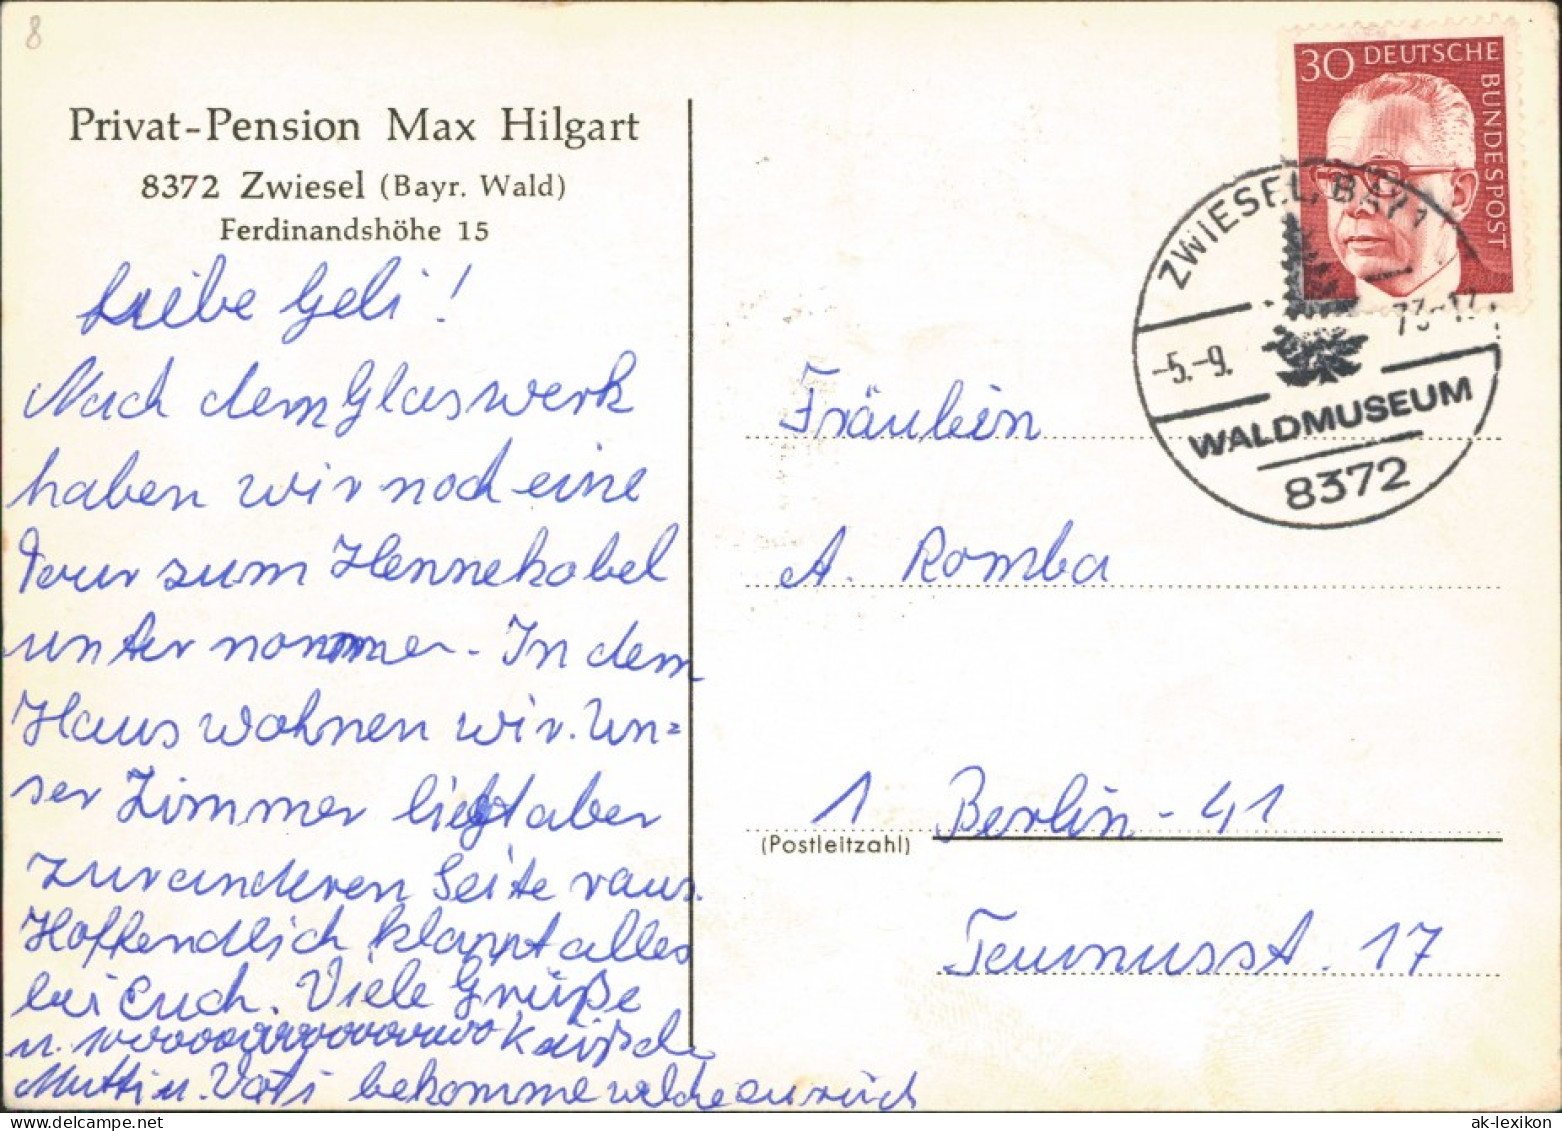 8
Privat-Pension Max Hilgart
8372 Zwiesel (Bayr. Wald)
Ferdinandshöhe 15
Liebe Geli!
Nach dem Glaswerk
haben wir noch eine
Tour zum Hennekobel
unternommen. In dem
Haus wohnen wir. Un=
ser Zimmer liegt aber
zur anderen Seite raus.
Hoffendlich klappt alles
bei Euch. Viele Grüße
u.
Mutti u. Vati bekomme welche zurück
30 DEUTSCHE
BUNDESPOST
ZWIESEL, BAY 1
-5.-9. 73-17
WALDMUSEUM
8372
Fräulein
A. Romba
1 Berlin-41
(Postleitzahl)
Taunusst. 17
ak-lexikon